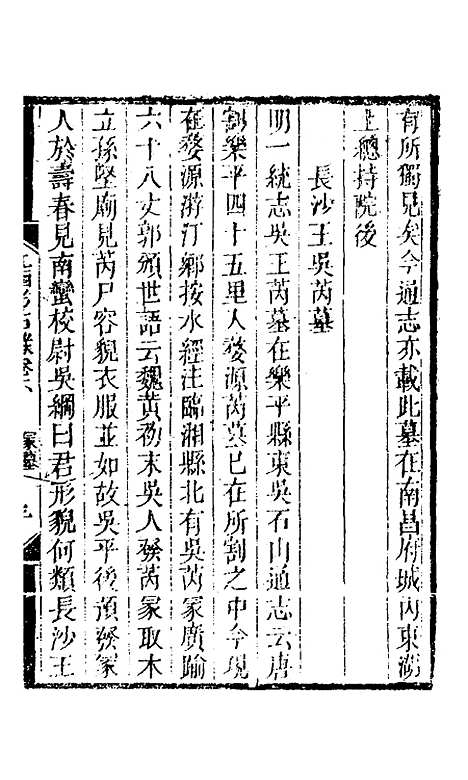 有所獨見矣今通志亦載此墓在南昌府城内東湖
上總持院後
長沙王吳芮墓
明一統志吳王芮墓在樂平縣東吳石山通志云唐
割樂平四十五里人婺源芮墓已在所割之中今現
在婺源游汀鄉按水經注臨湘縣北有吳芮冢廣踰
六十八丈郭頒世語云魏黃初末吳人發芮冢取木
立孫堅廟見芮尸容貌衣服並如故吳平後預發冢
人於壽春見南蠻校尉吳綱曰君形貌何類長沙王
冢墓